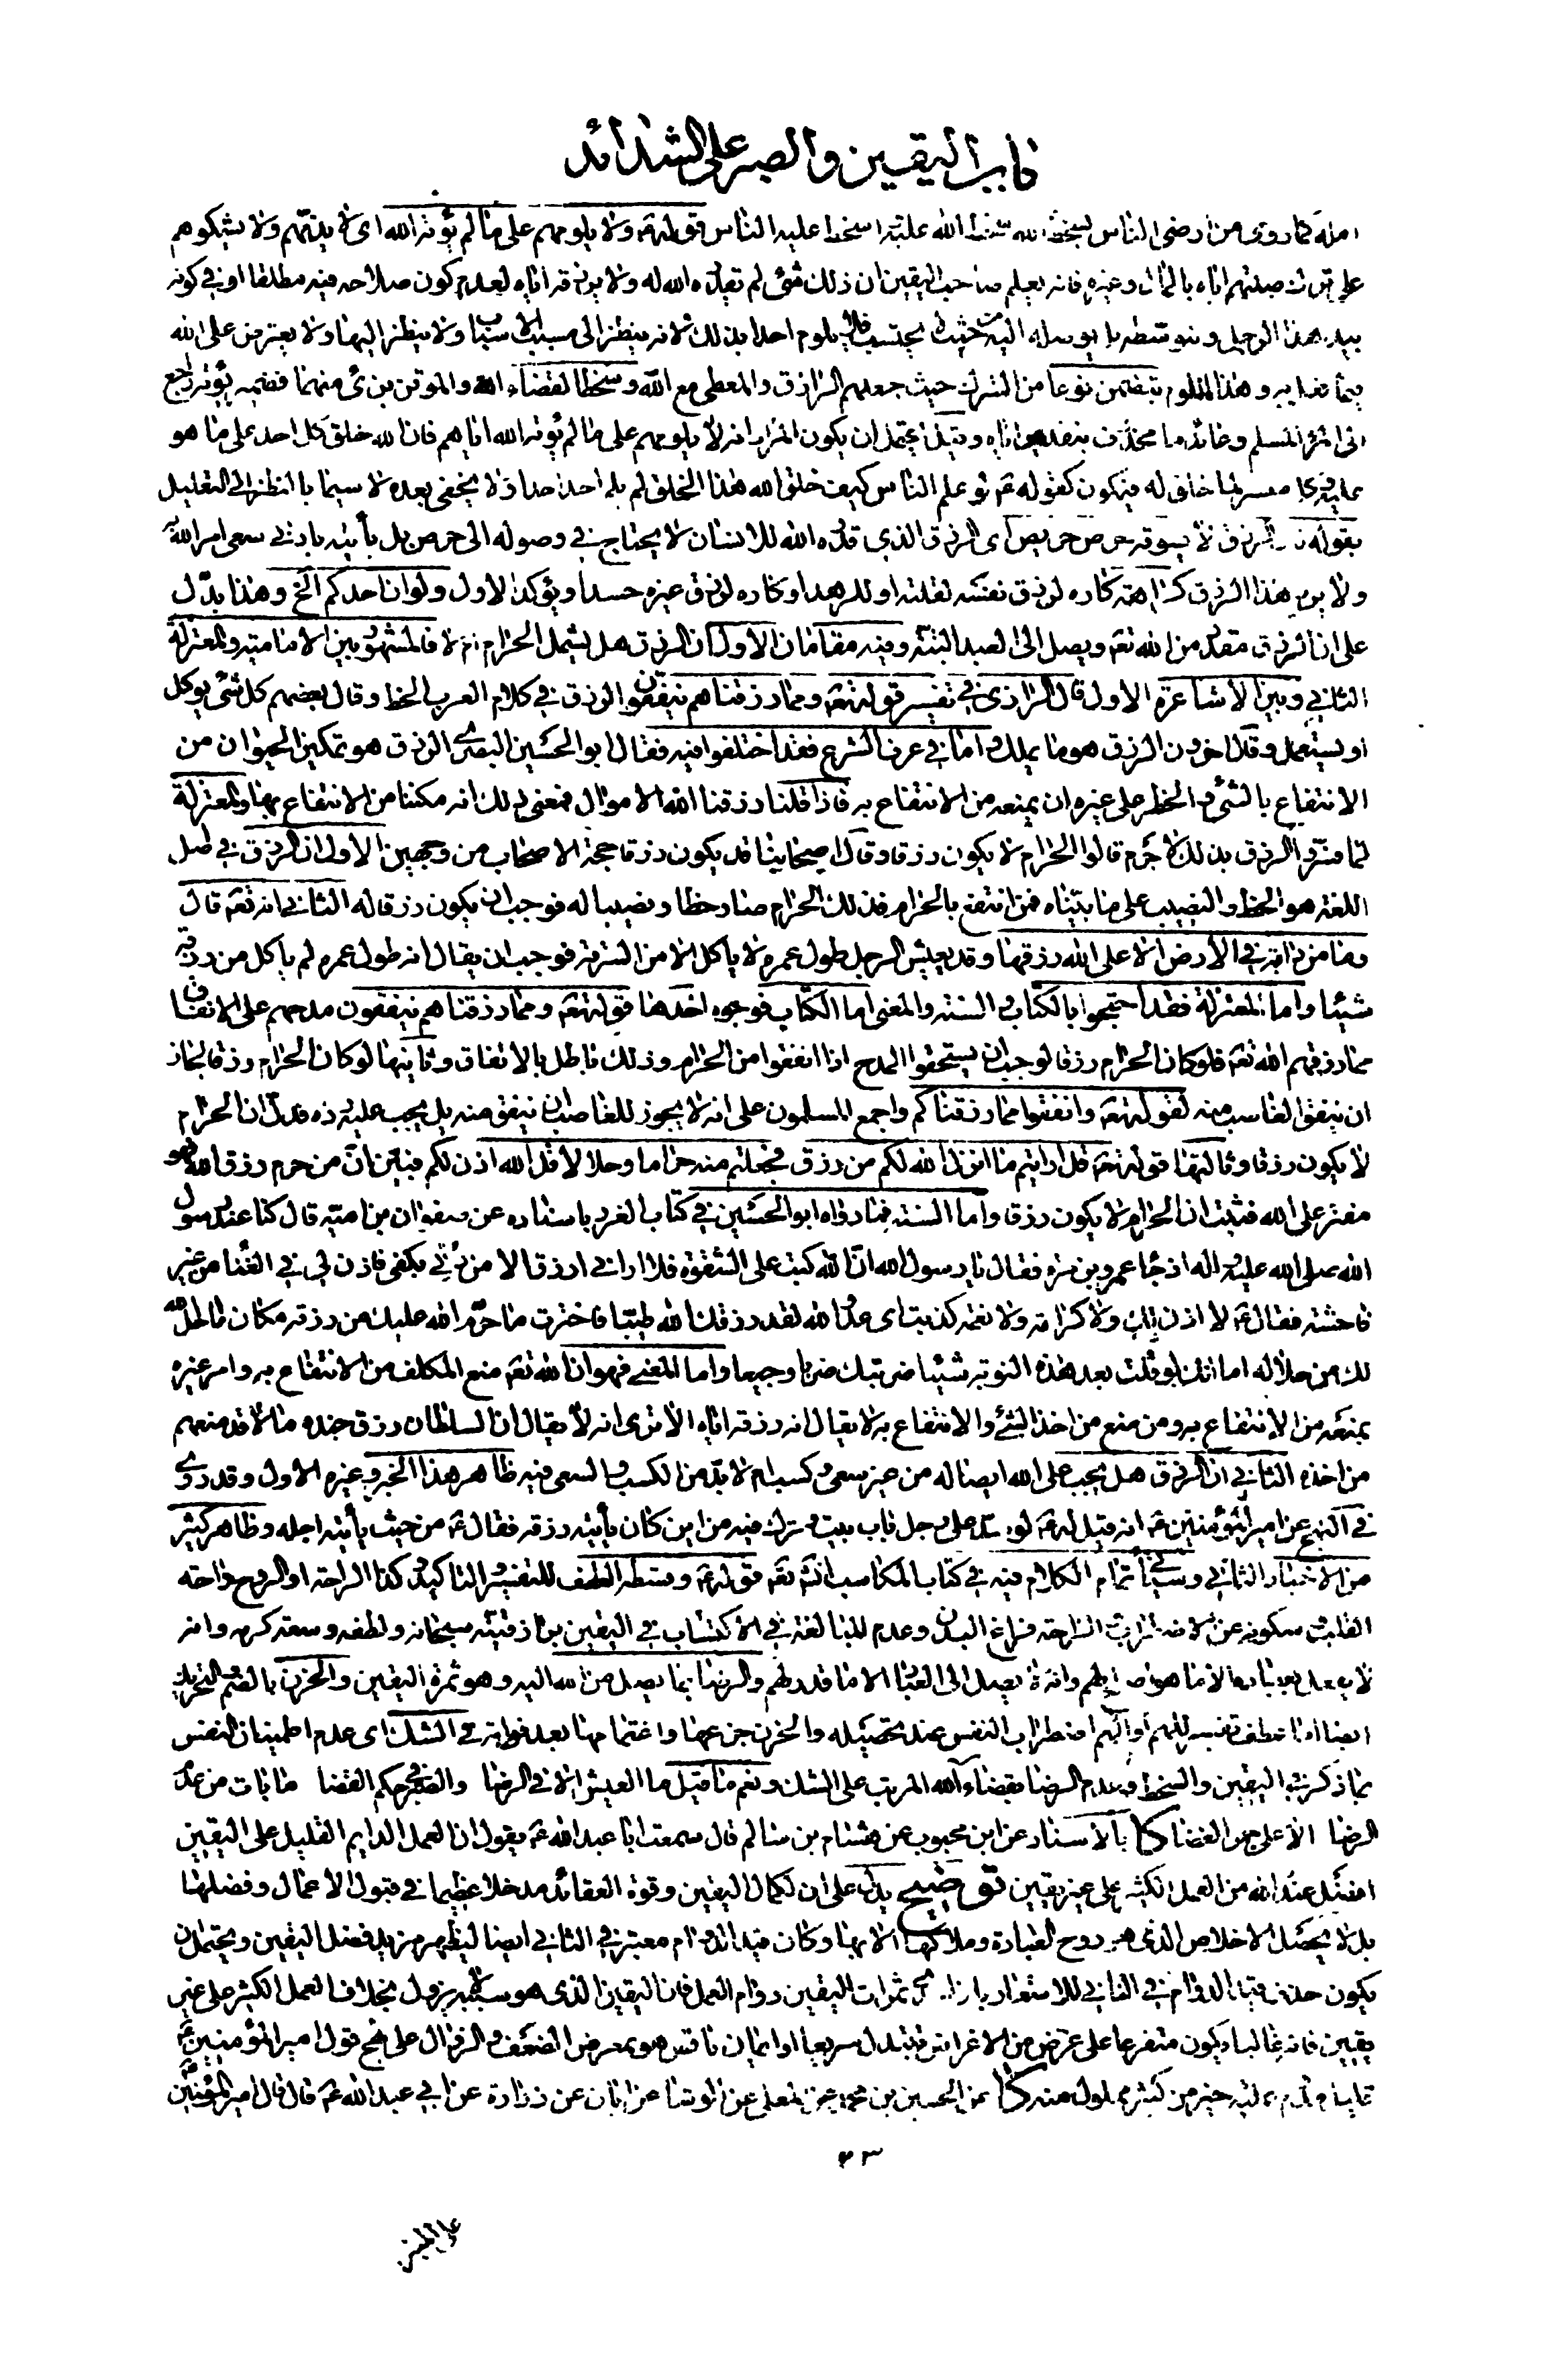 باب اليقين والصبر على الشدائد
امله كما روى من ارضى الناس بسخط الله سخط الله عليه واسخط عليه الناس قوله ع ولا يلومهم على ما لم يؤته الله اى لا يذمهم ولا يشكوهم
على ترك صلتهم اياه بالمال وغيره فانه يعلم صاحب اليقين ان ذلك شئ لم يقدره الله له ولا يرزقه اياه لعدم كون صلاحه فيه مطلقا او في كونه
بيد هذا الرجل وبتوسطه بل يوصله اليه من حيث لا يحتسب فلا يلوم احدا بذلك لانه ينظر الى مسبب الاسباب ولا ينظر اليها ولا يعترض على الله
فيما فعل به وهذا اللوم يتضمن نوعا من الشرك حيث جعلهم الرازق والمعطى مع الله وسخطا لقضاء الله والموقن برئ منهما فضمير يؤته راجع
الى المرء المسلم وعائد ما محذوف بتقدير اياه وقيل يحتمل ان يكون المراد انه لا يلومهم على ما لم يؤته الله اياهم فان الله خلق كل احد على ما هو
عليه وكل ميسر لما خلق له فيكون كقوله ع لو علم الناس كيف خلق الله هذا الخلق لم يلم احد احدا ولا يخفى بعده لا سيما بالنظر الى التعليل
بقوله فان الرزق لا يسوقه حرص حريص اى الرزق الذي قدره الله للانسان لا يحتاج في وصوله الى حرص بل يأتيه بادنى سعى امر الله به
ولا يرد هذا الرزق كراهة كاره لرزق نفسه لقلته او للزهد او كاره لرزق غيره حسدا ويؤكد الاول ولو ان احدكم الخ وهذا يدل
على ان الرزق مقدر من الله تعالى ويصل الى العبد البتة وفيه مقامان الاول ان الرزق هل يشمل الحرام ام لا فالمشهور بين الامامية والمعتزلة
الثانى وبين الاشاعرة الاول قال الرازى في تفسير قوله تع ومما رزقناهم ينفقون الرزق في كلام العرب الحظ وقال بعضهم كل شئ يؤكل
او يستعمل وقال اخرون الرزق هو ما يملك واما في عرف الشرع فقد اختلفوا فيه فقال ابو الحسين البصرى الرزق هو تمكين الحيوان من
الانتفاع بالشئ والحظر على غيره ان يمنعه من الانتفاع به فاذا قلنا رزقنا الله الاموال فمعنى ذلك انه مكننا من الانتفاع بها والمعتزلة
لما فسروا الرزق بذلك لا جرم قالوا الحرام لا يكون رزقا وقال اصحابنا قد يكون رزقا حجة الاصحاب من وجهين الاول ان الرزق في اصل
اللغة هو الحظ والنصيب على ما بيناه فمن انتفع بالحرام فذلك الحرام صار حظا ونصيبا له فوجب ان يكون رزقا له الثانى انه تعالى قال
وما من دابة في الارض الا على الله رزقها وقد يعيش الرجل طول عمره لا ياكل الا من السرقة فوجب ان يقال انه طول عمره لم ياكل من رزقه
شيئا واما المعتزلة فقد احتجوا بالكتاب والسنة والمعنى اما الكتاب فوجوه احدها قوله تع ومما رزقناهم ينفقون مدحهم على الانفاق
مما رزقهم الله تع فلو كان الحرام رزقا لوجب ان يستحقوا المدح اذا انفقوا من الحرام وذلك باطل بالاتفاق وثانيها لو كان الحرام رزقا لجاز
ان ينفق الغاصب منه لقوله تع وانفقوا مما رزقناكم واجمع المسلمون على انه لا يجوز للغاصب ان ينفق منه بل يجب عليه رده فدل ان الحرام
لا يكون رزقا وثالثها قوله تع قل ارايتم ما انزل الله لكم من رزق فجعلتم منه حراما وحلالا قل الله اذن لكم فبين ان من حرم رزق الله فهو
مفتر على الله فثبت ان الحرام لا يكون رزقا واما السنة فما رواه ابو الحسين في كتاب الغرر باسناده عن صفوان بن امية قال كنا عند رسول
الله صلى الله عليه واله اذ جاء عمرو بن قرة فقال يا رسول الله ان الله كتب على الشقوة فلا ارانى ارزق الا من دفى بكفى فاذن لى في الغناء من غير
فاحشة فقال ع لا اذن لك ولا كرامة ولا نعمة كذبت اى عدو الله لقد رزقك الله طيبا فاخترت ما حرم الله عليك من رزقه مكان ما احل الله
لك من حلاله اما انك لو قلت بعد هذه النوبة شيئا ضربتك ضربا وجيعا واما المعنى فهو ان الله تع منع المكلف من الانتفاع به وامر غيره
بمنعه من الانتفاع به ومن منع من اخذ الشئ والانتفاع به لا يقال انه رزقه اياه الا ترى انه لا يقال ان السلطان رزق جنده مالا قد منعهم
من اخذه الثانى ان الرزق هل يجب على الله ايصاله من غير سعى وكسب ام لا بد من الكسب والسعى فيه ظاهر هذا الخبر وغيره الاول وقد روى
في النهج عن امير المؤمنين ع انه قيل له ع لو سد على رجل باب بيت وترك فيه من اين كان يأتيه رزقه فقال ع من حيث يأتيه اجله وظاهر كثير
من الاخبار الثانى وسيأتى تمام الكلام فيه في كتاب المكاسب انش تع قوله ع وقسطه العطف للتفسير والتاكيد وكذا الراحة او الروح راحة
القلب وسكونه عن الاضطراب والراحة فراغ البدن وعدم المبالغة في الاكتساب في اليقين برازقيته سبحانه ولطفه وسعة كرمه وانه
لا يفعل بعباده الا ما هو اصلح لهم وانه لا يصل الى العباد الا ما قدر لهم والرضا بما يصل من الله اليه وهو ثمرة اليقين والحزن بالضم والتحريك
ايضا اما عطف تفسير للهم او الهم اضطراب النفس عند تحصيله والحزن جزعها واغتمامها بعد فواته في الشك اى عدم اطمينان النفس
بما ذكر في اليقين والسخط وعدم الرضا بقضاء الله المترتب على الشك ونعم ما قيل ما العيش الا في الرضا والصبر في حكم القضا ما بات من عدم
الرضا الا على جمر الغضا كا بالاسناد عن ابن محبوب عن هشام بن سالم قال سمعت ابا عبد الله ع يقول ان العمل الدايم القليل على اليقين
افضل عند الله من العمل الكثير على غير يقين توضيح يدل على ان لكمال اليقين وقوة العقائد مدخلا عظيما في قبول الاعمال وفضلها
بل لا يحصل الاخلاص الذى هو روح العبادة وملاكها الا بها وكان قيد الدوام معتبر في الثانى ايضا ليظهر مزيد فضل اليقين ويحتمل ان
يكون حذف قيد الدوام في الثانى للاشعار بان احد ثمرات اليقين دوام العمل فان اليقين الذى هو سببه لا يزول بخلاف العمل الكثير على غير
يقين فانه غالبا يكون متفرعا على غرض من الاغراض فيتبدل سريعا او ايمان ناقص هو بمعرض الضعف والزوال على نهج قول امير المؤمنين ع
قليل مدوم عليه خير من كثير مملول منه كا عن الحسين بن محمد عن المعلى عن الوشا عن ابان عن زرارة عن ابى عبد الله ع قال قال امير المؤمنين ع
٢٣
على المنبر